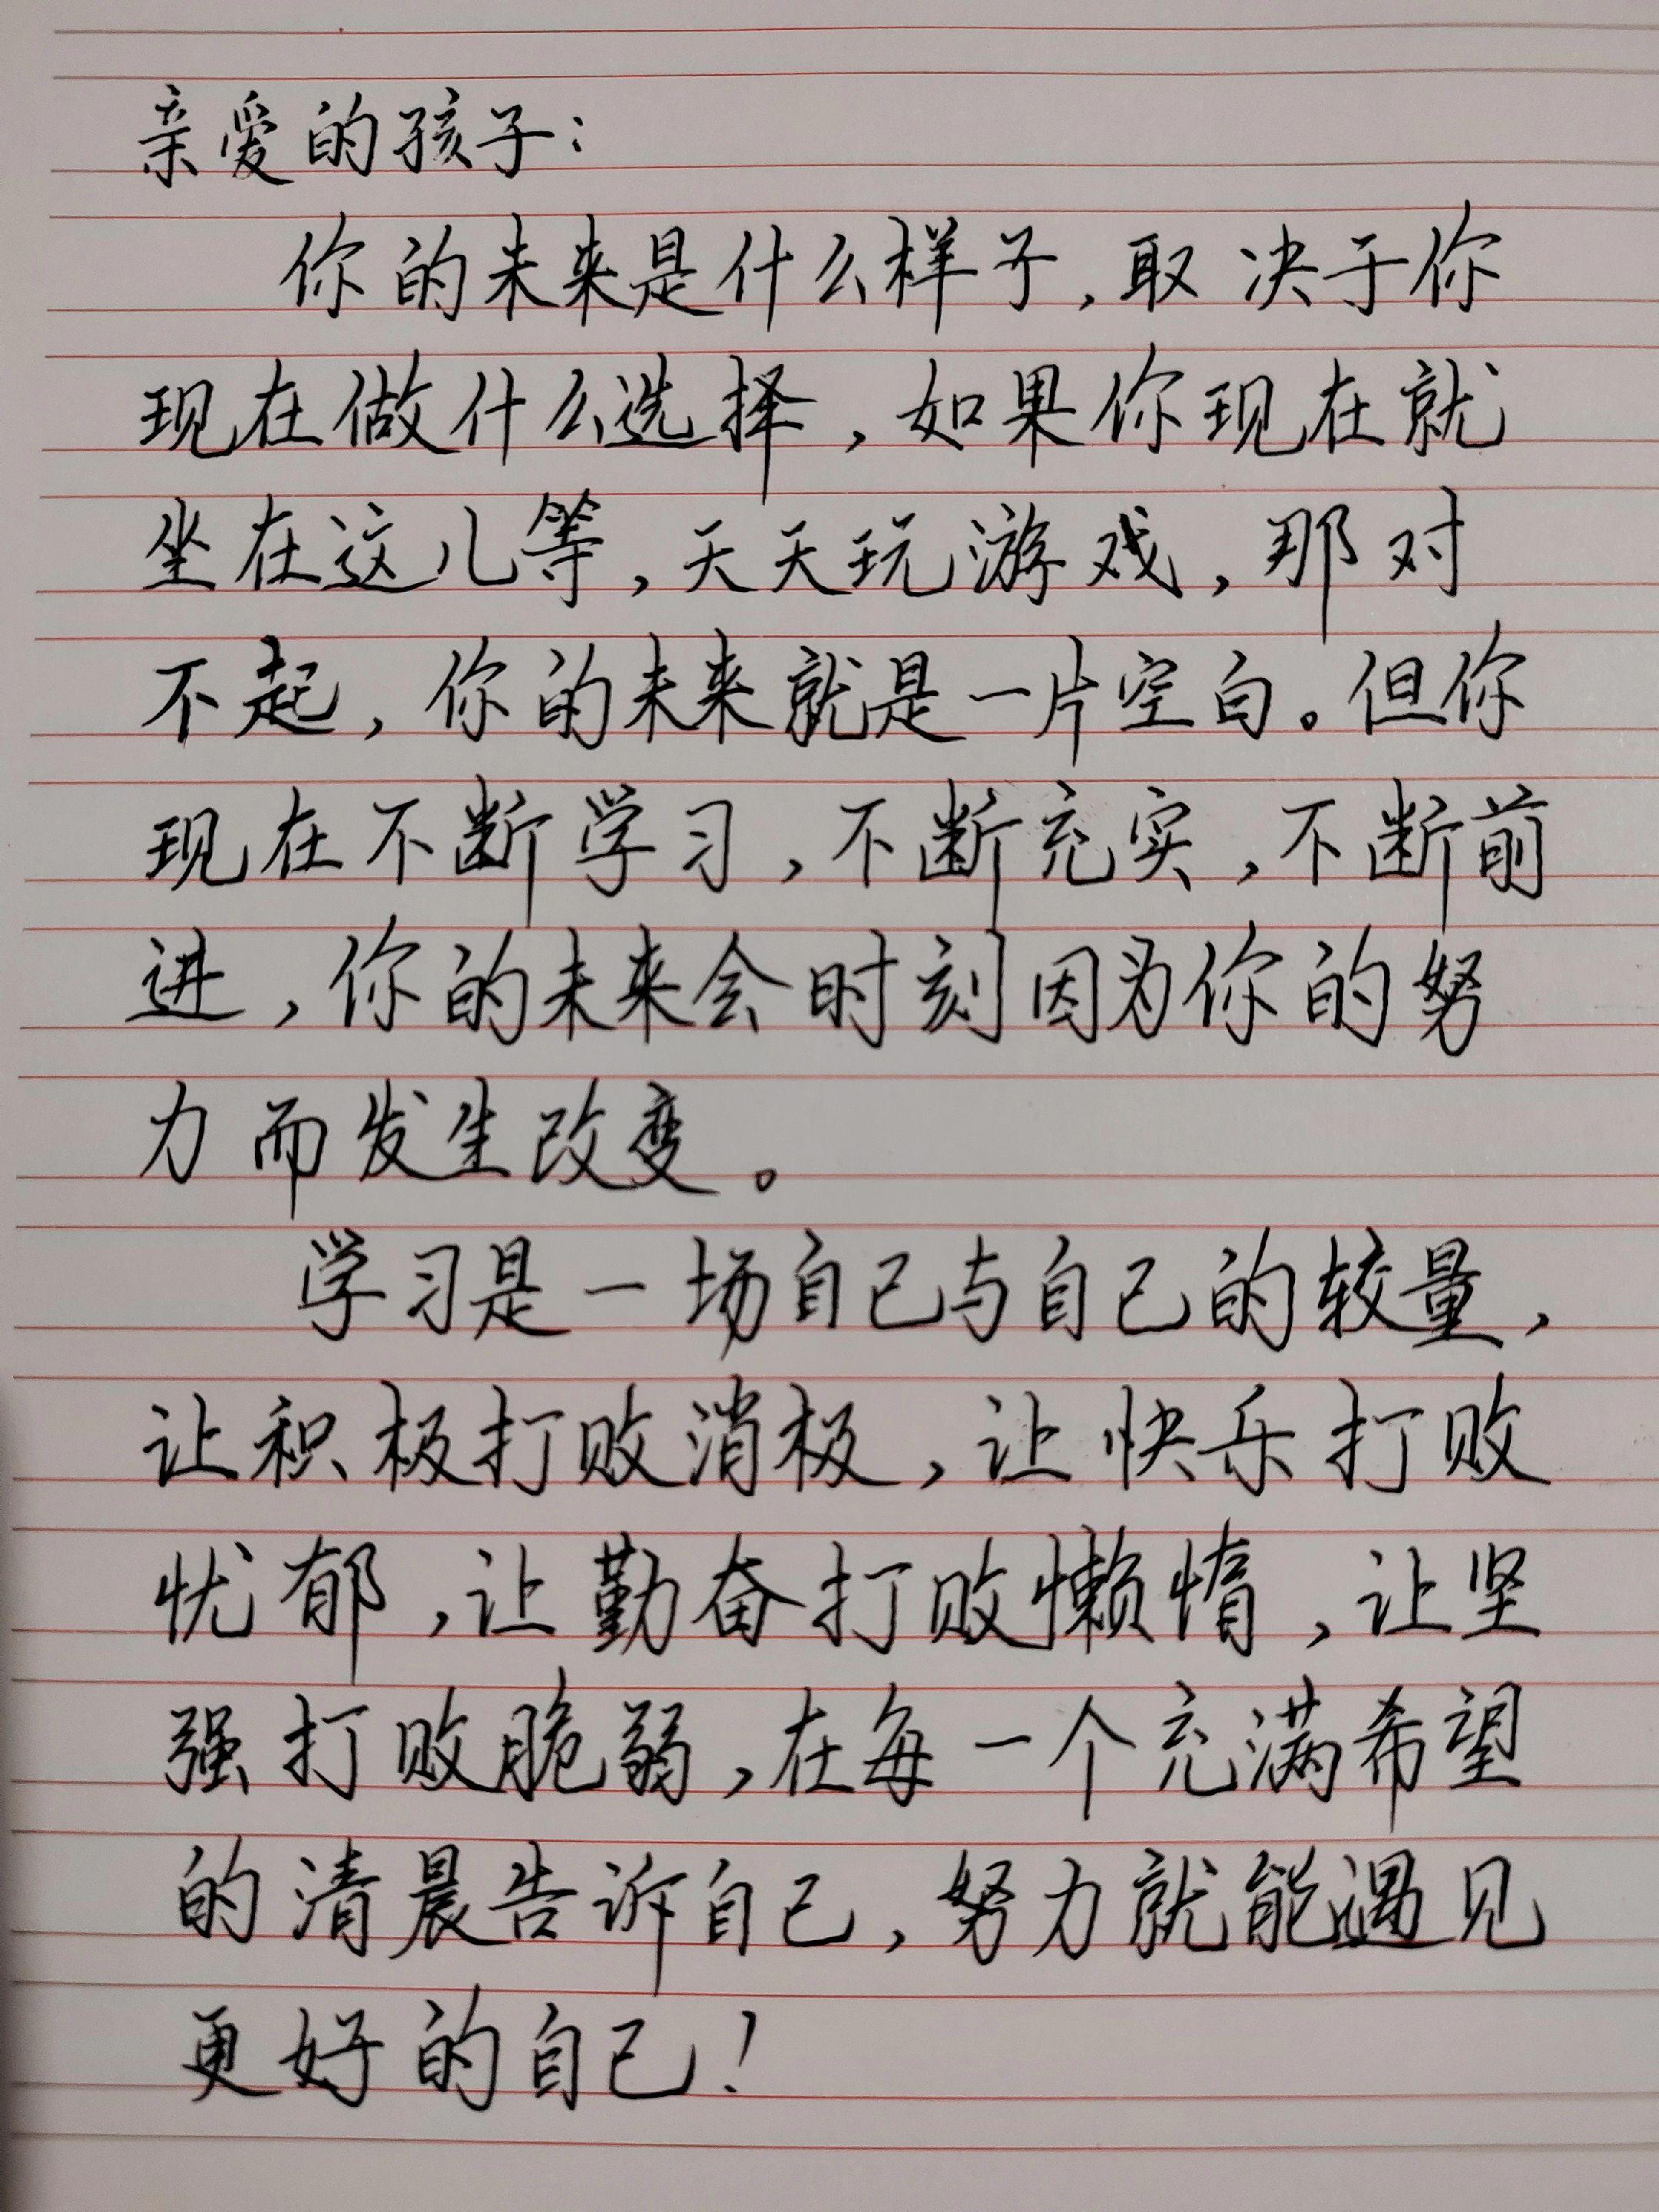 亲爱的孩子：
你的未来是什么样子，取决于你
现在做什么选择，如果你现在就
坐在这儿等，天天玩游戏，那对
不起，你的未来就是一片空白。但你
现在不断学习，不断充实，不断前
进，你的未来会时刻因为你的努
力而发生改变。
学习是一场自己与自己的较量，
让积极打败消极，让快乐打败
忧郁，让勤奋打败懒惰，让坚
强打败脆弱，在每一个充满希望
的清晨告诉自己，努力就能遇见
更好的自己！